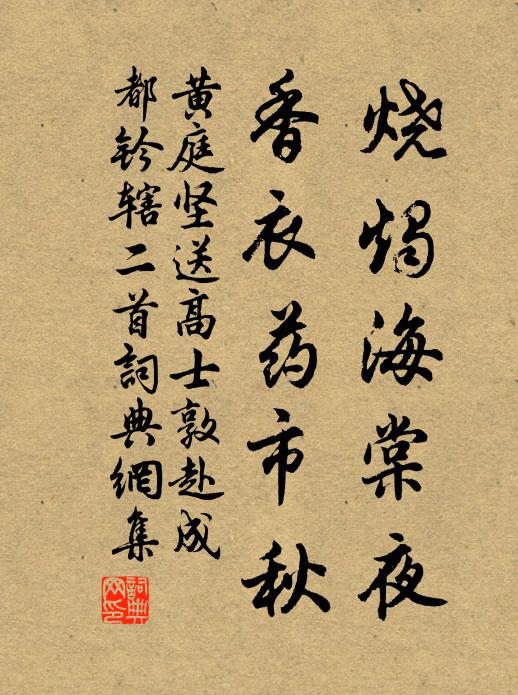 烧烛海棠夜
香衣药市秋
黄庭坚送高士敦赴成
都钤辖二首詞典網集
詞典网印